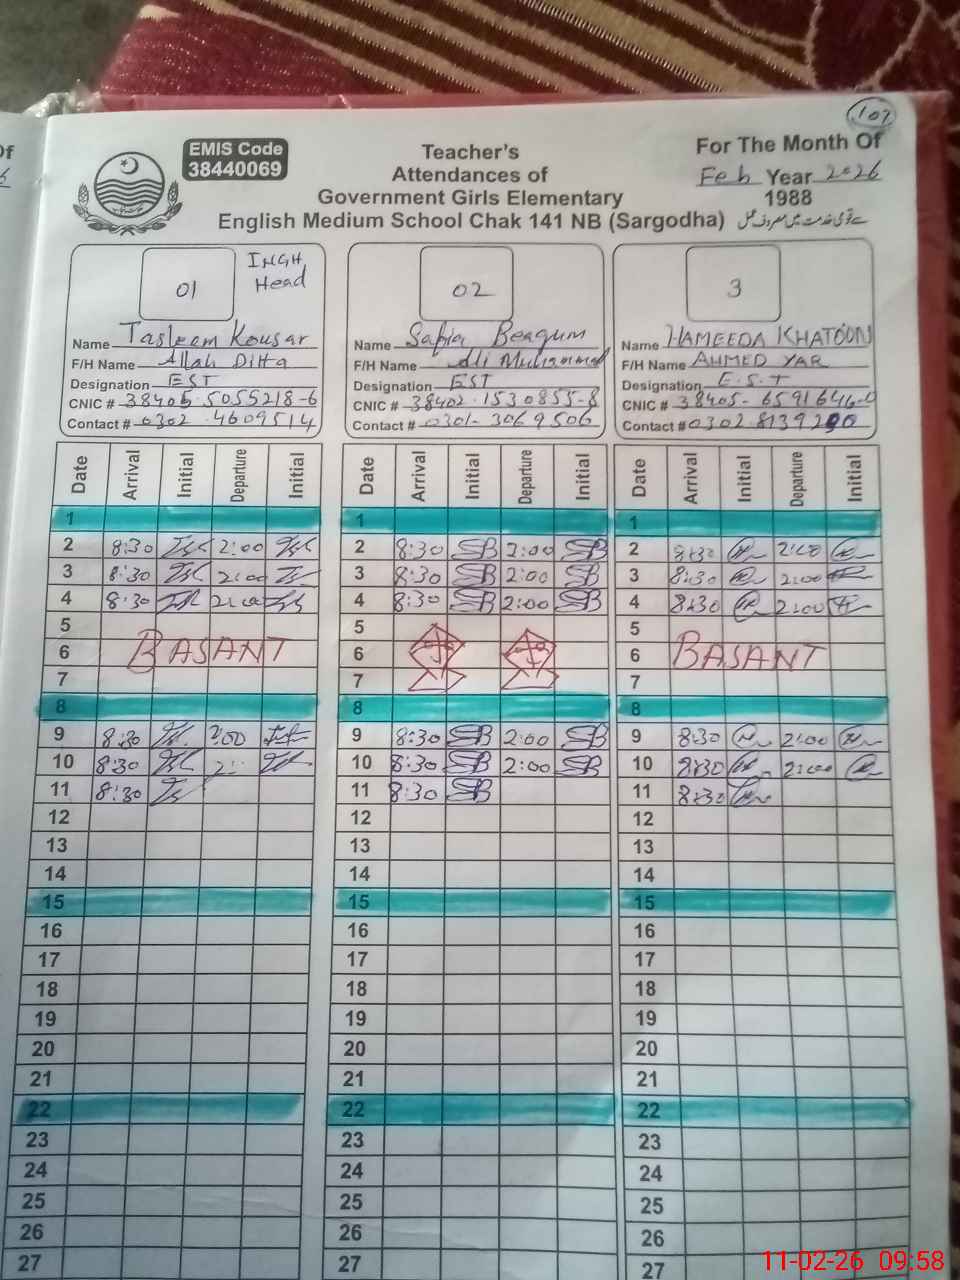 109
EMIS Code
38440069
Teacher's
Attendances of
Government Girls Elementary
English Medium School Chak 141 NB (Sargodha)
For The Month Of
Feb Year 2026
1988
01 INCH Head
Name Tasleem Kousar
F/H Name Allah Ditta
Designation EST
CNIC # 38405-5055218-6
Contact # 0302-4609514
02
Name Safia Beagum
F/H Name Ali Muhammad
Designation EST
CNIC # 38402-1530855-8
Contact # 0301-3069506
3
Name HAMEEDA KHATOON
F/H Name AHMED YAR
Designation E.S.T
CNIC # 38405-6591646-0
Contact # 0302 8139290
Date Arrival Initial Departure Initial Date Arrival Initial Departure Initial Date Arrival Initial Departure Initial
1 1 1
2 8:30 2:00 2 8:30 SB 2:00 SB 2 8:30 2:00
3 8:30 2:00 3 8:30 SB 2:00 SB 3 8:30 2:00
4 8:30 2:00 4 8:30 SB 2:00 SB 4 8:30 2:00
5 5 5
6 BASANT 6 6 BASANT
7 7 7
8 8 8
9 8:30 2:00 9 8:30 SB 2:00 SB 9 8:30 2:00
10 8:30 2: 10 8:30 SB 2:00 SB 10 8:30 2:00
11 8:30 11 8:30 SB 11 8:30
12 12 12
13 13 13
14 14 14
15 15 15
16 16 16
17 17 17
18 18 18
19 19 19
20 20 20
21 21 21
22 22 22
23 23 23
24 24 24
25 25 25
26 26 26
27 27 27
11-02-26 09:58